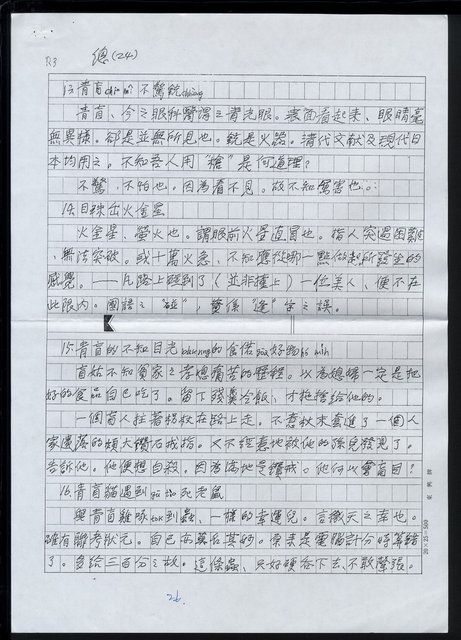 R3
總(24)
13.青盲 不驚銃
青盲、今之眼科醫謂之青光眼。表面看起來、眼睛毫
無異樣。卻是並無所見也。銃是火器。清代文献及現代日
本均用之。不知吾人用“槍”是何道理？
不驚、不怕也。因為看不見。故不知厲害也。
14.目珠出火金星
火金星、螢火也。謂眼前火星直冒也。指人突遇困難
、無法突破。或十萬火急、不知應從哪一點做起所發生的
感覺。——凡路上碰到了（並非撞上）一位美人、便不在
此限内。國語之“碰”，實係“逢”字之誤。
15.青盲的不知目光 的食偌 好物
盲姑不知貧家之孝媳痛苦的歷程。以為媳婦一定是把
好的食品自已吃了。留下殘羹冷飯、才拖捨給他的。
一個盲人拄著拐杖在路上走。不意杖末套進了一個人
家遺落的頗大鑽石戒指。又不經意地被他的孫兒發見了。
告訴他。他便想自殺。因為滿地是鑽戒。他何以會盲目？
16.青盲貓遇到 死老鼠
與青盲雞啄 到蟲、一樣的幸運兒。言徼天之幸也。
雖有聯考狀元。自己亦莫名其妙。原來是電腦計分時算錯
了。多給三百分之故。這條蟲、只好硬吞下去、不敢聲張。
20×25=500
26.